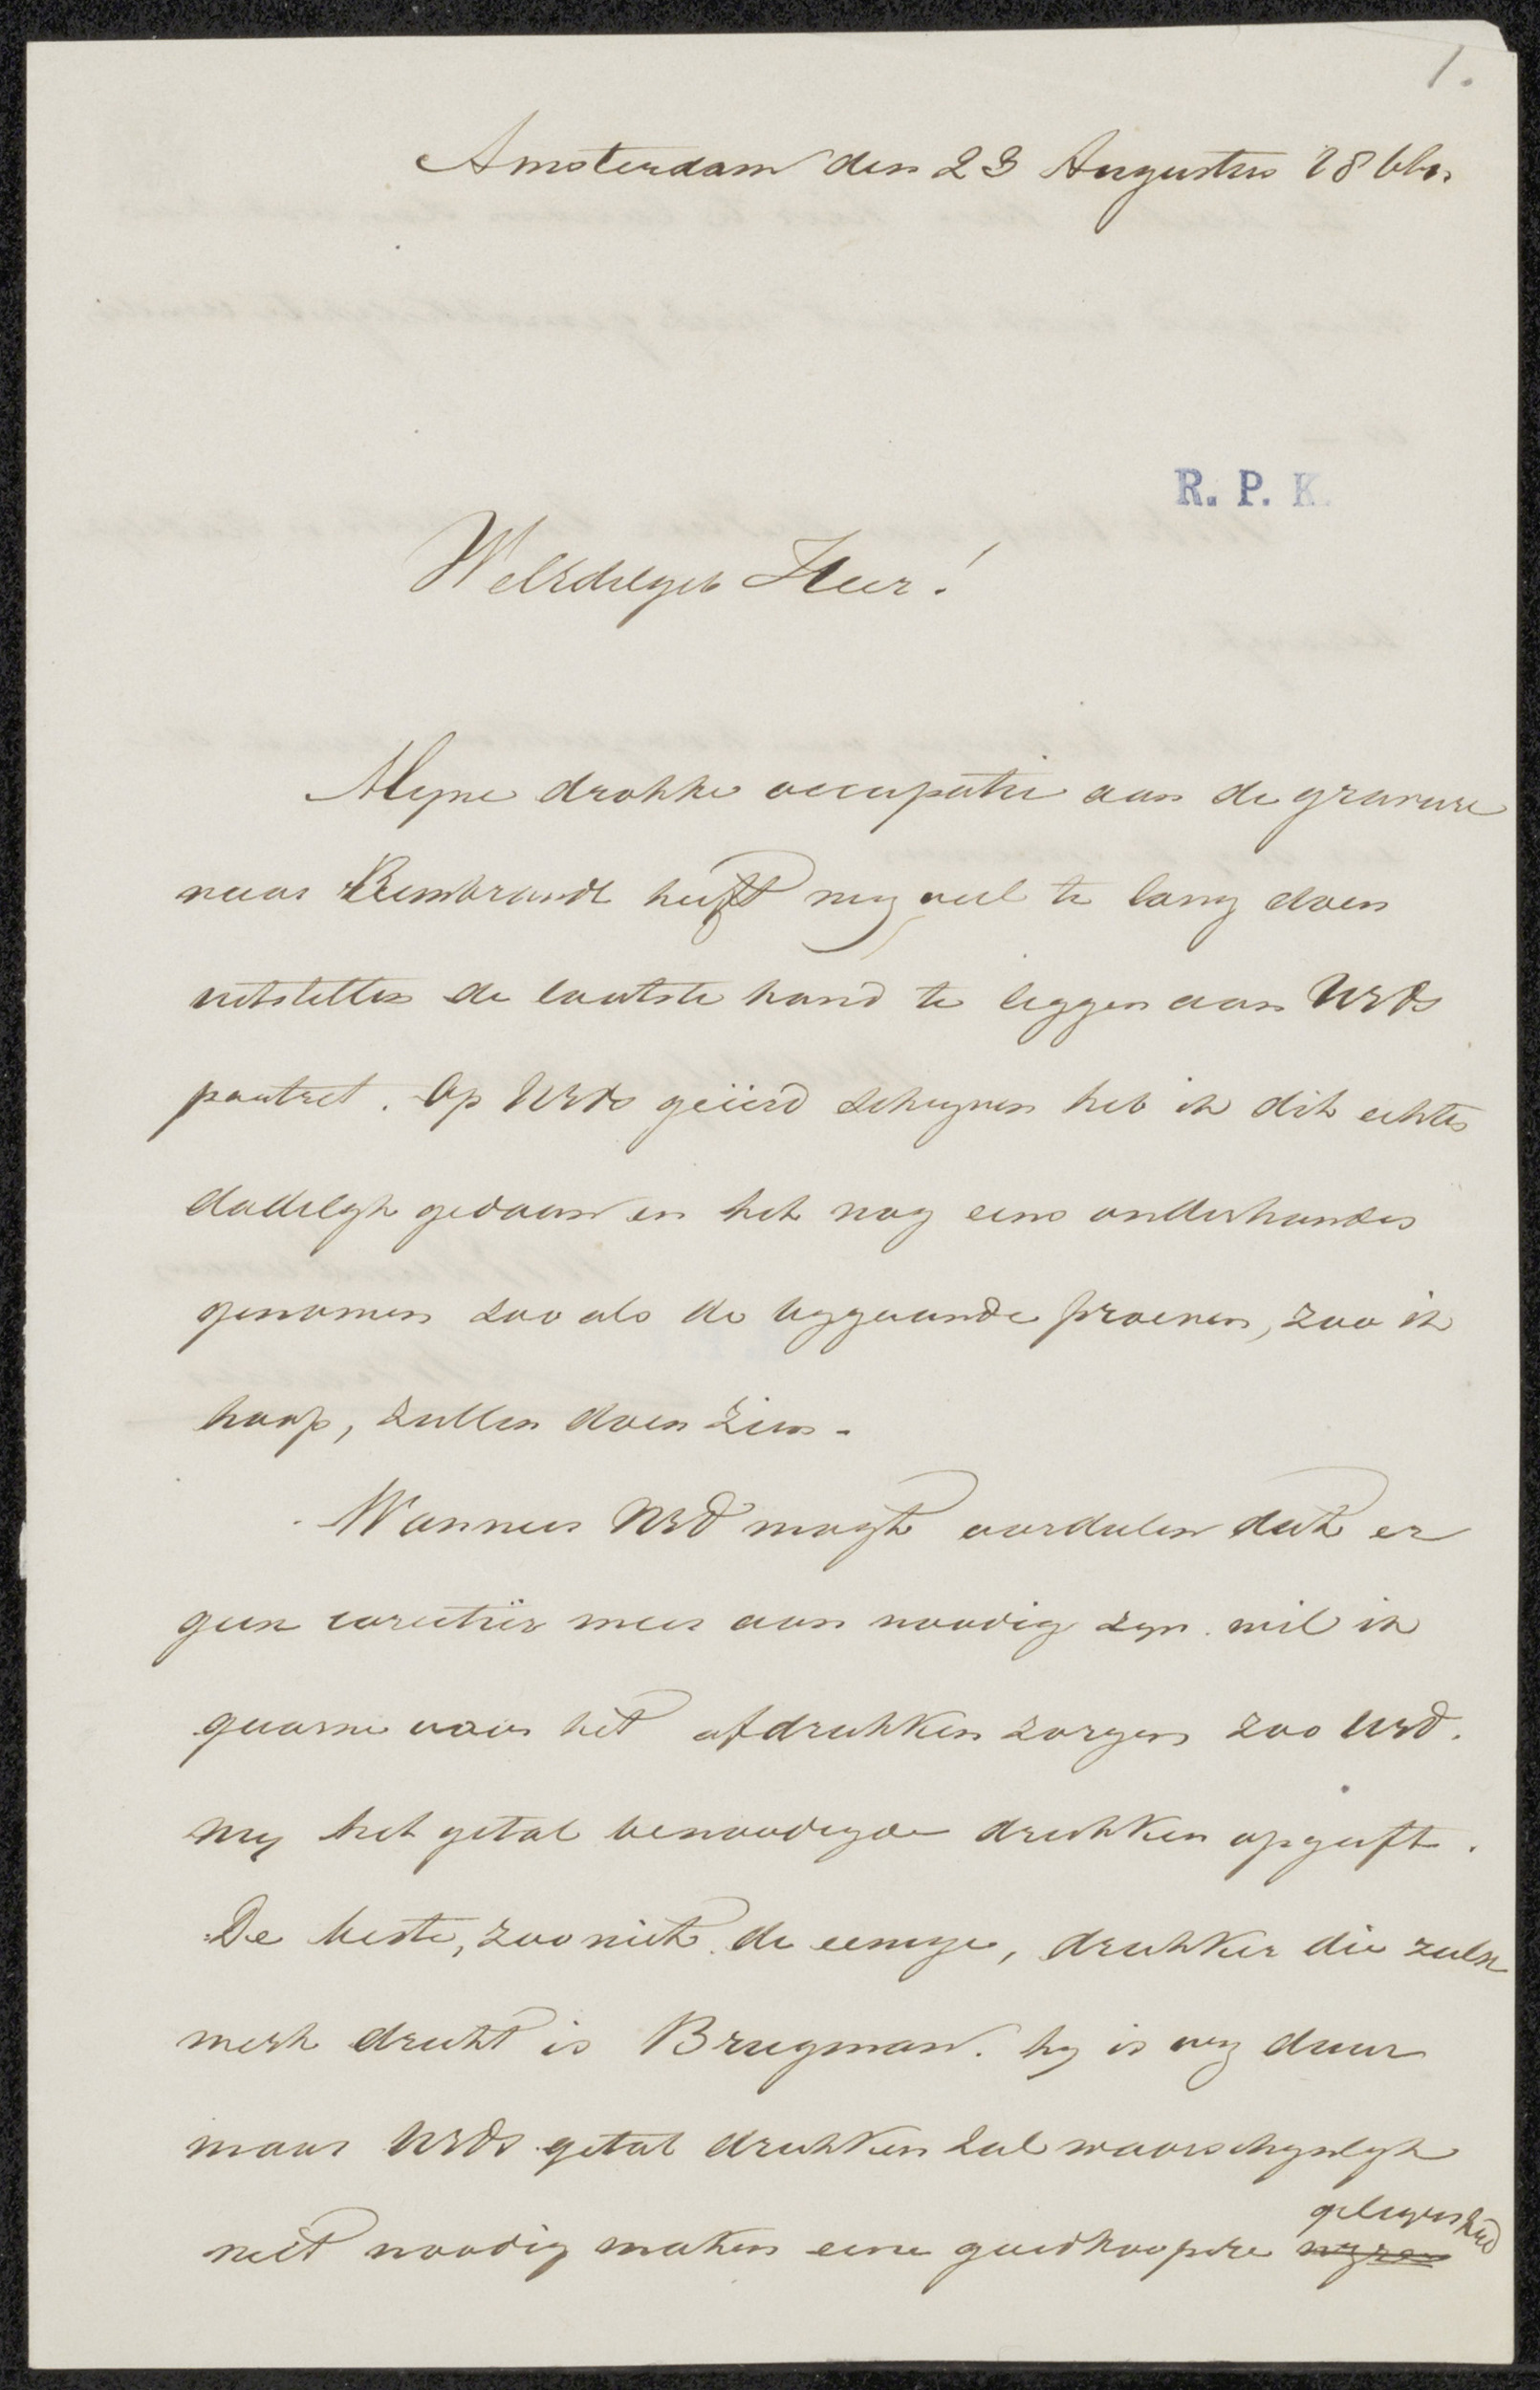 1.
Amsterdam den 23 Augustus 18
R. P. K.
WelEdelgeb Heer!
Myne drokke occupatie aan de gravure
naar Rembrandt heeft my veel te lang doen
uitstellen de laatste hand te leggen aan UEds
portret. Op UEds geëerd schryven heb ik dit echter
dadelyk gedaan en het nog eens onderhanden
genomen zoo als de bygaande proeven, zoo ik
hoop, zullen doen zien.
Wanneer UEd mogt oordeelen dat er
geen correctiën meer aan noodig zyn wil ik
gaarne voor het afdrukken zorgen zoo UEd.
my het getal benoodigde drukken opgeeft.
De beste, zoo niet de eenige, drukker die zulk
werk drukt is Brugman. hy is vry duur
maar UEds getal drukken zal waarschynlyk
niet noodig maken eene goedkoopere gelegenheid